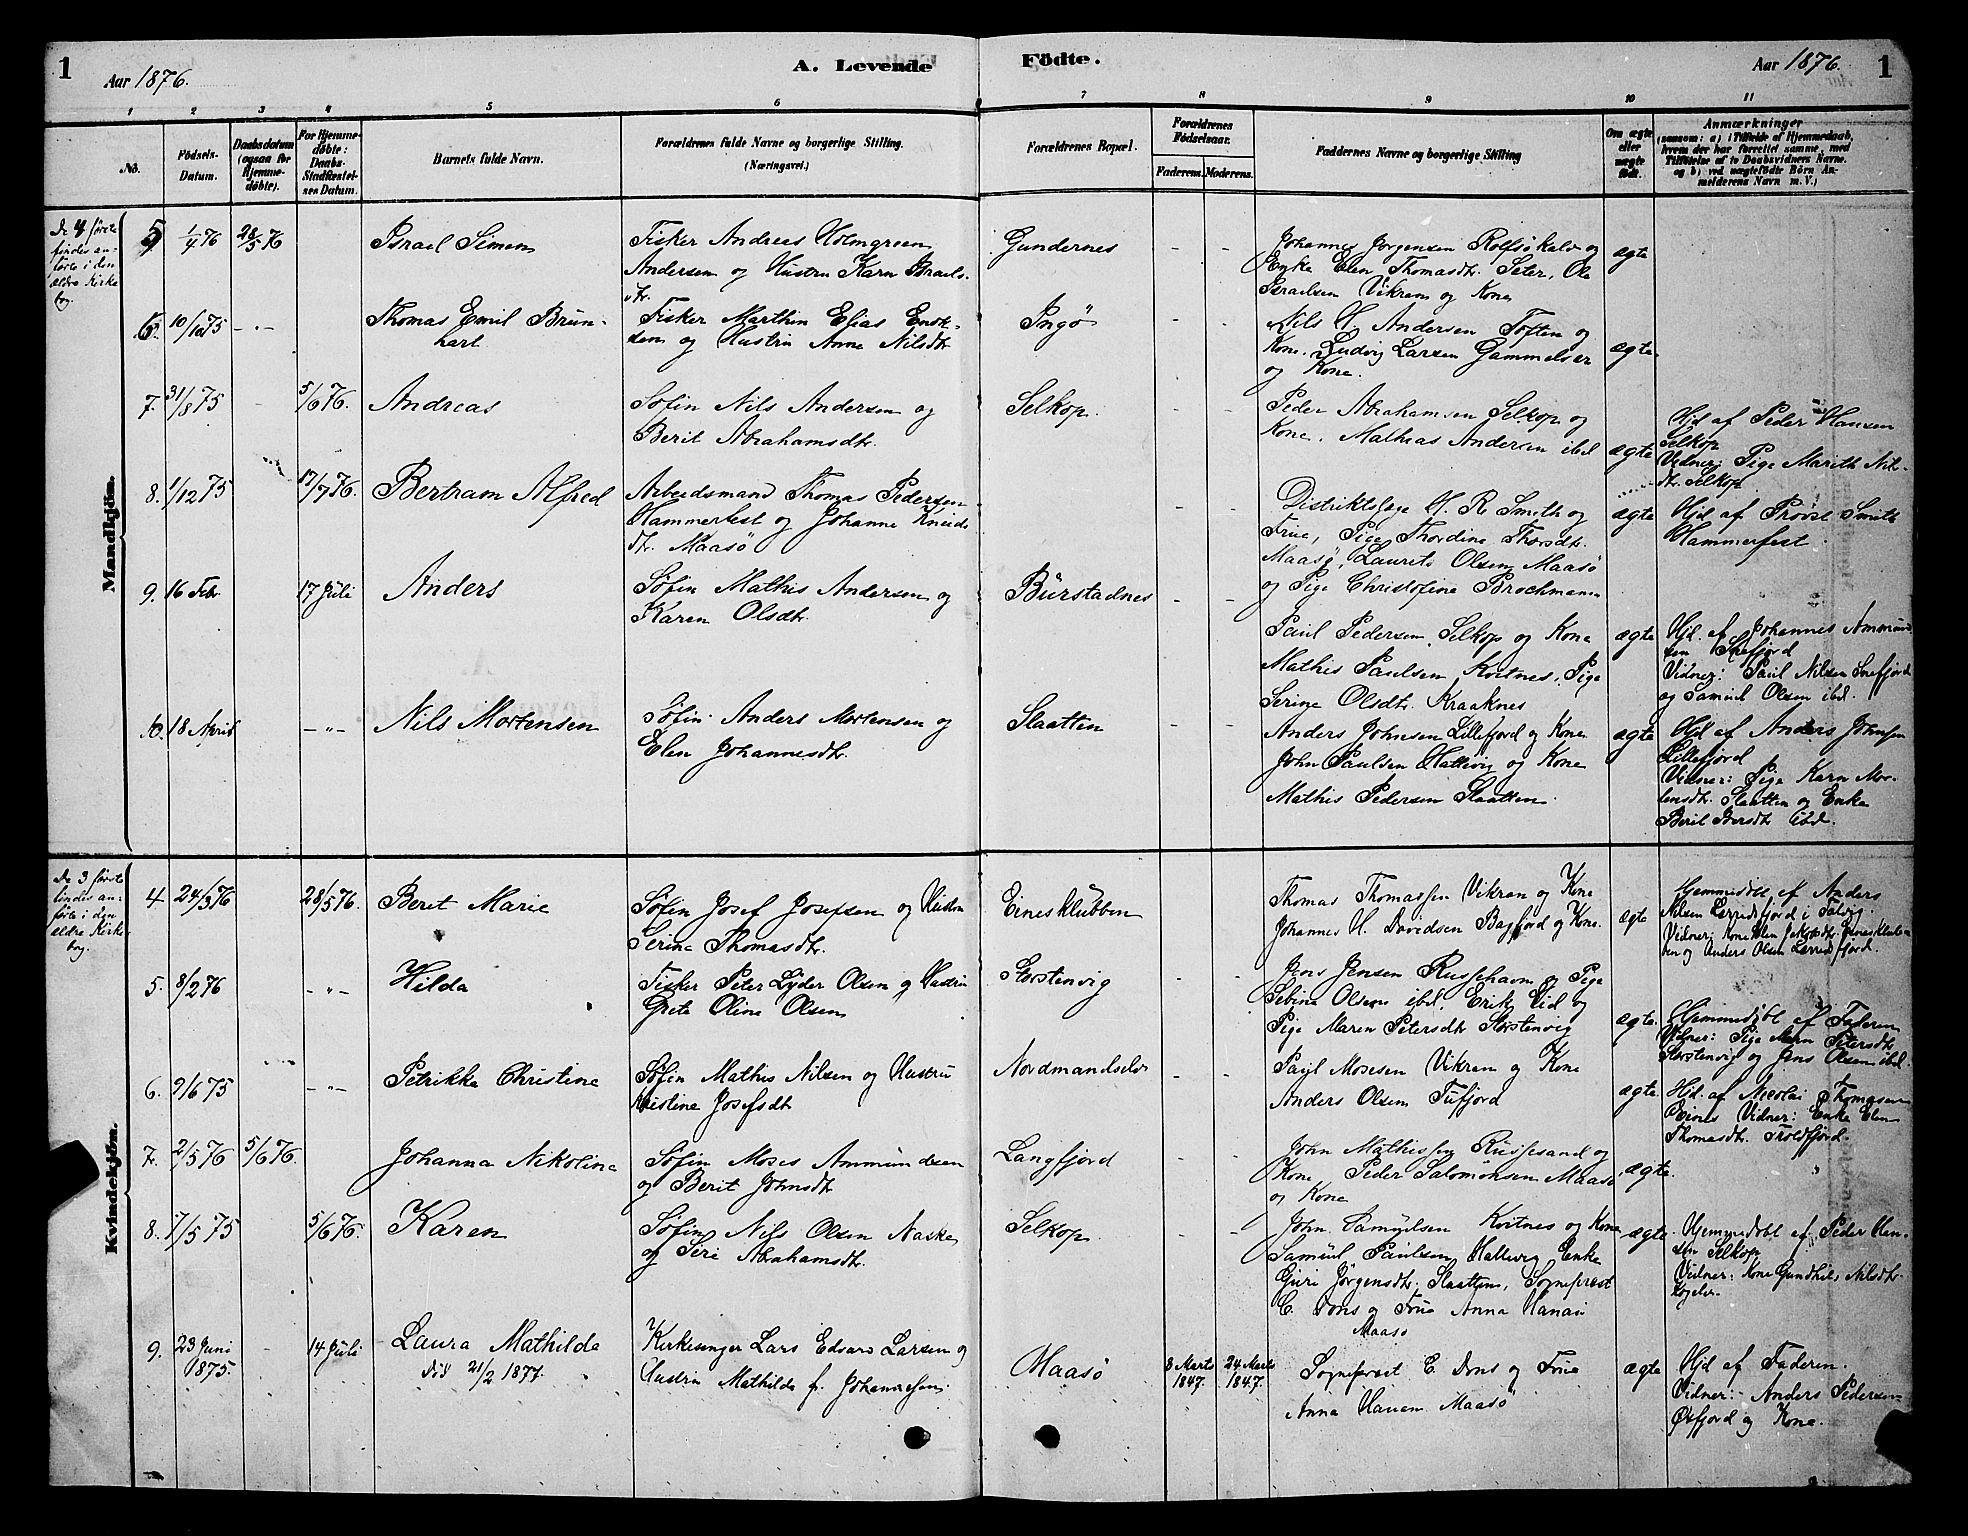 1
Aar 1876.
A. Levende
Födte.
Aar 1876.
1
1 2 3 4 5 6 7 8 9 10 11
No.
Födsels-
Datum.
Daabsdatum
(ogsaa for
Hjemme-
döbte).
For Hjemme-
döbte:
Daabs-
Stadfæstel-
ses Datum.
Barnets fulde Navn.
Forældrenes fulde Navne og borgerlige Stilling.
(Næringsvei.)
Forældrenes Bopæl.
Forældrenes
Födselsaar.
Faderens. Moderens.
Faddernes Navne og borgerlige Stilling
Om ægte
eller
uægte
födt.
Anmærkninger
(saasom: a) i Tilfælde af Hjemmedaab,
hvem der har forrettet samme, med
Tilföielse af to Daabsvidners Navne.
og b) ved uægtefödte Börn An-
melderens Navn m. V.)
De 4 første
findes an-
førte i den
ældre Kirke
bog.
Mandkjön.
5 1/4 76 28/5 76
Israel Simon
Fisker Andreas Holmgreen
Andersen og Hustru Karn Israels-
dtr.
Gundernes
- -
Johannes Jørgensen Rolfsökalv og
Enke Elen Thomasdtr. Seter, Ole
Israelsen Vikran og Kone
ægte
6. 10/10 75 - " -
Thomas Emil Brun-
hart
Fisker Marthin Elias Enok-
sen og Hustru Anne Nilsdtr
Ingö
- -
Nils H. Andersen Toften og
Kone. Ludvig Larsen Gammelvær
og Kone.
ægte
7. 31/8 75 5/6 76.
Andreas
Søfin Nils Andersen og
Berit Abrahamsdtr.
Selkop.
- -
Peder Abrahamsen Selkop og
Kone. Mathias Andersen ibd
ægte
Hjd af Peder Hansen
Selkop
Vidner: Pige Marith Nils-
dtr. Selkop
8. 1/12 75 17/7 76.
Bertram Alfred
Arbeidsmand Thomas Pedersen
Hammerfest og Johanne Knuds
dtr. Maasö
Distriktslæge H. R. Smith og
Frue, Pige Thordine Thorsdtr.
Maasö, Laurits Olsen Maasö
og Pige Christofine Brochmann
ægte
Hjd af Provst Smith
Hammerfest.
9. 16 Feb. 17 Juli
Anders
Søfin Mathis Andersen og
Karen Olsdtr.
Bürstadnes
- -
Paul Pedersen Selkop og Kone
Mathis Paulsen Kvitnes, Pige
Serine Olsdtr. Kraaknes
ægte
Hjd. af Johannes Ammund
sen Snefjord
Vidner: Paul Nilsen Snefjord
og Samuel Olsen ibd.
10. 18 April - " -
Nils Mortensen
Søfin Anders Mortensen og
Elen Johannesdtr.
Slaatten
- -
Anders Johnsen Lillefjord og Kone
John Paulsen Hattevig og Kone
Mathis Pedersen Slaatten.
ægte
Hjd af Anders Johnsen
Lillefjord
Vidner: Pige Karn Mor-
tensdtr. Slaatten og Enke
Berit Persdtr ibd.
De 3 første
findes an-
førte i den
ældre Kirke-
bog.
Kvindekjön.
4. 24/3 76 28/5 76.
Berit Marie
Søfin Josef Josefsen og Hustru
Serine Thomasdtr.
Einesklubben
Thomas Thomassen Vikran og Kone
Johannes H. Davidsen Bagfjord og Kone.
ægte
Hjemmedøbt af Anders
Nilsen Lerredsfjord i Talvig.
Vidner: Kone Elen Einesklub-
ben og Anders Olsen Lerredsfjord.
5. 8/2 76 - " -
Hilda
Fisker Peter Lyder Olsen og Hustru
Grete Oline Olsen
Storstenvig
- -
Jens Jensen Russehavn og Pige
Sebina Olsen ibd, Erik Eid og
Pige Maren Petersdtr Storstenvig
ægte.
Hjemmedøbt af Faderen
Vidner: Pige Maren Petersdtr
Storstenvig og Jens Olsen ibd.
6. 2/6 75 - " -
Petrikka Christine
Søfin Mathis Nilsen og Hustru
Kristine Josefsdtr
Nordmandselv
- -
Paul Mosesen Vikran og Kone
Anders Olsen Tufjord
ægte.
Hjd. af Nicolai Thomassen
Vidner: Enke Elen
Thomasdtr. Troldfjord.
7. 2/5 76 5/6 76.
Johanna Nikolina
Søfin Moses Ammundsen
og Berit Johnsdtr
Langfjord
John Mathissen Russesand og
Kone Peder Salomonsen Maasö
og Kone
ægte.
"
8. 7/5 75 5/6 76.
Karen
Søfin Nils Olsen Naske
og Siri Abrahamsdtr.
Selkop
- -
John Samuelsen Kvitnes og Kone
Samuel Paulsen Hattevig Enke
Guri Jörgensdtr. Slaatten, Sogneprest
C. Dons og Frue Anna Hanai
Maasö
ægte.
Hjemmedøbt af Peder Han-
sen Selkop
Vidner: Kone Gundhild Nilsdtr.
9. 23 Juni
1875. - 14 Juli
Laura Mathilde
död 21/2 1877.
Kirkesanger Lars Edvard Larsen og
Hustru Mathilde f. Johannesen
Maasö
8 Marts
1847.
24 Marts
1847.
Sogneprest C. Dons og Frue
Anna Hanem Maasö
ægte
Hjd af Faderen.
Vidner:- Anders Pedersen
Öxfjord og Kone.